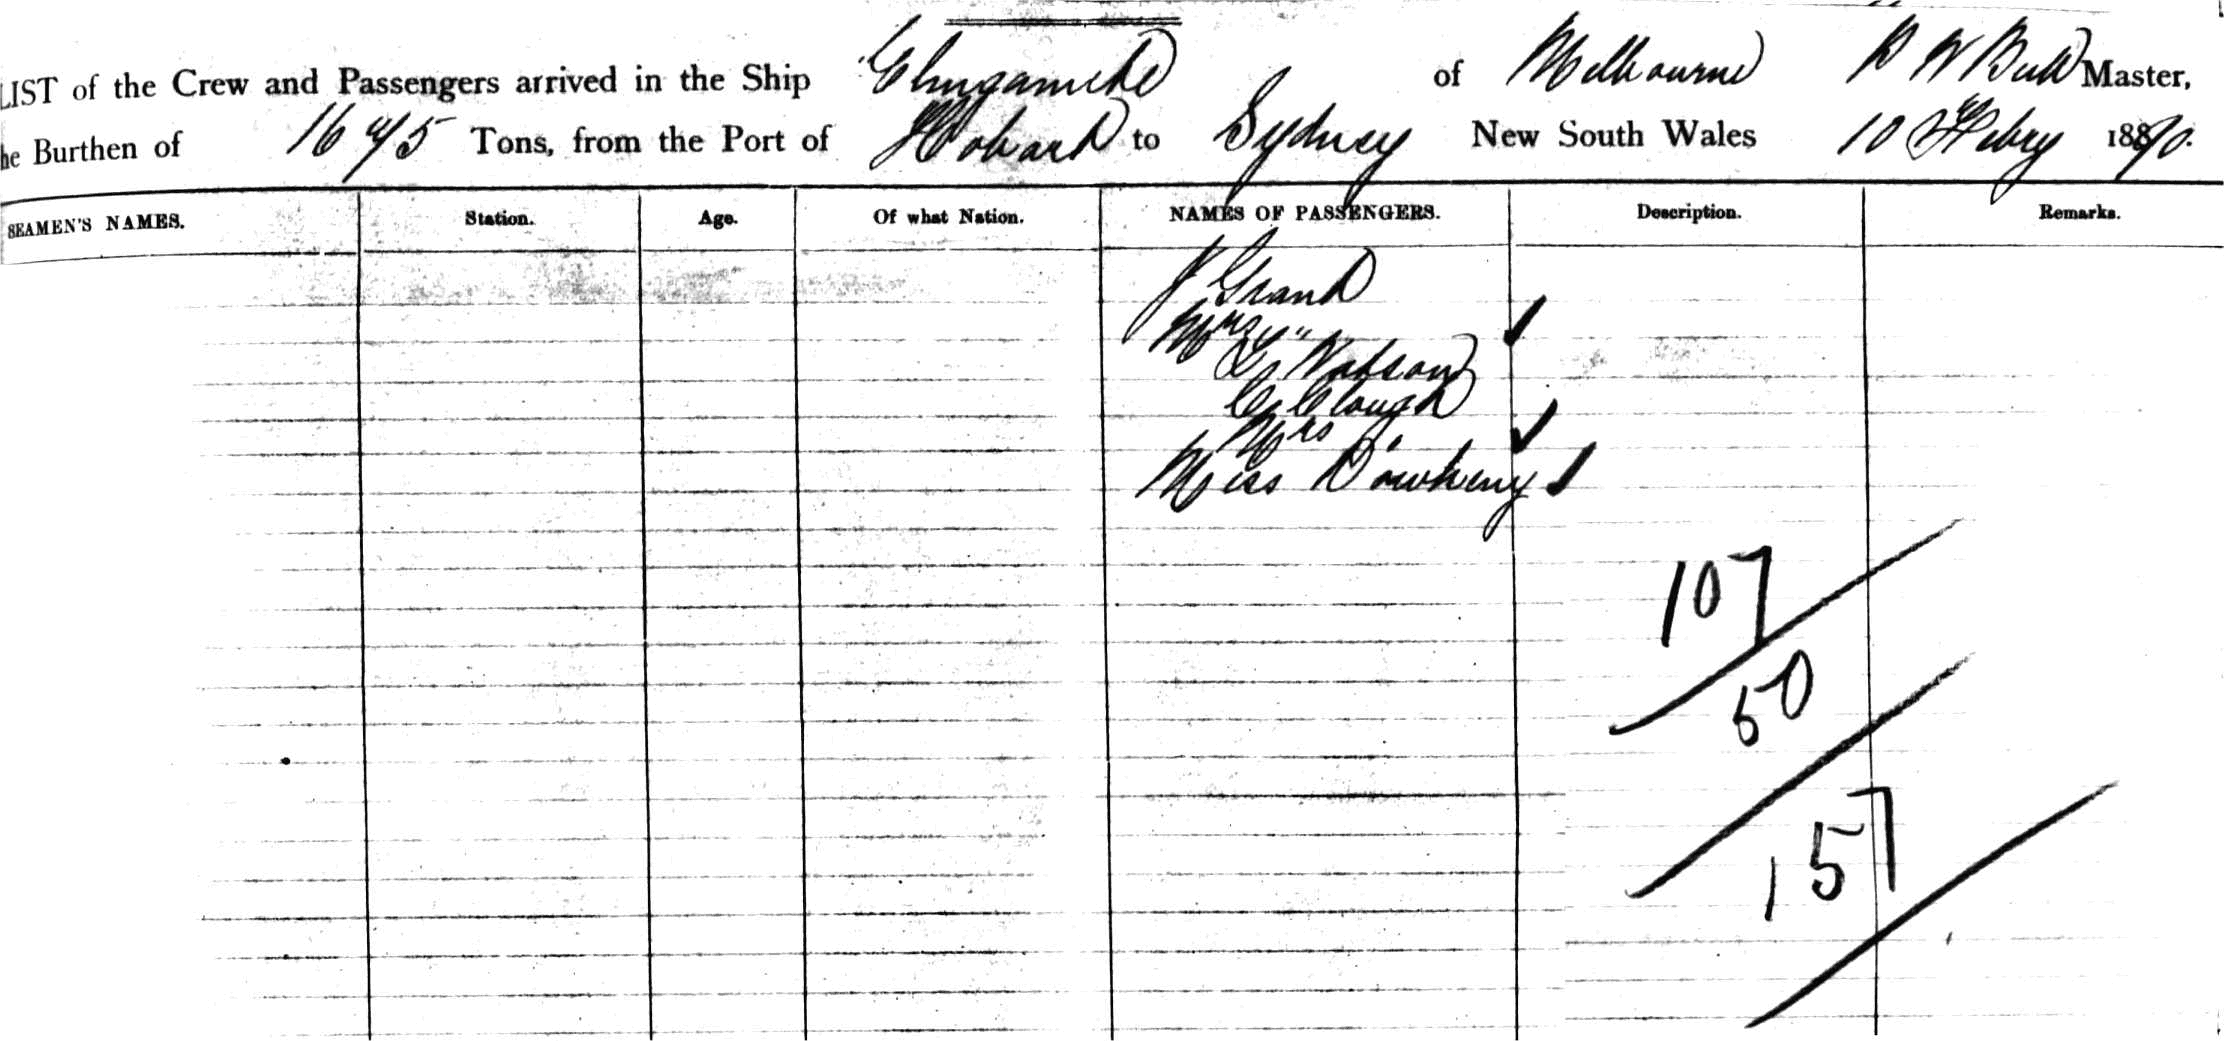 LIST of the Crew and Passengers arrived in the Ship Elingamite of Melbourne Master,
he Burthen of 1675 Tons, from the Port of Hobart to Sydney New South Wales 10 Febry 1890.
SEAMEN'S NAMES. Station. Age. Of what Nation. NAMES OF PASSENGERS. Description. Remarks.
J Grant
Mrs "
G Watson
C Clough
Mrs "
Miss
107
50
157